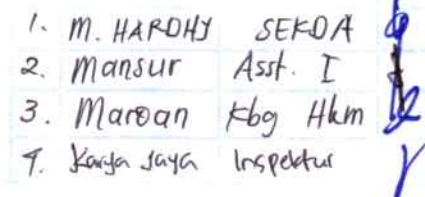 1. M. HARDHY SEKDA
2. Mansur Asst. I
3. Maroan Kbg Hkm
4. Karya Jaya Inspektur